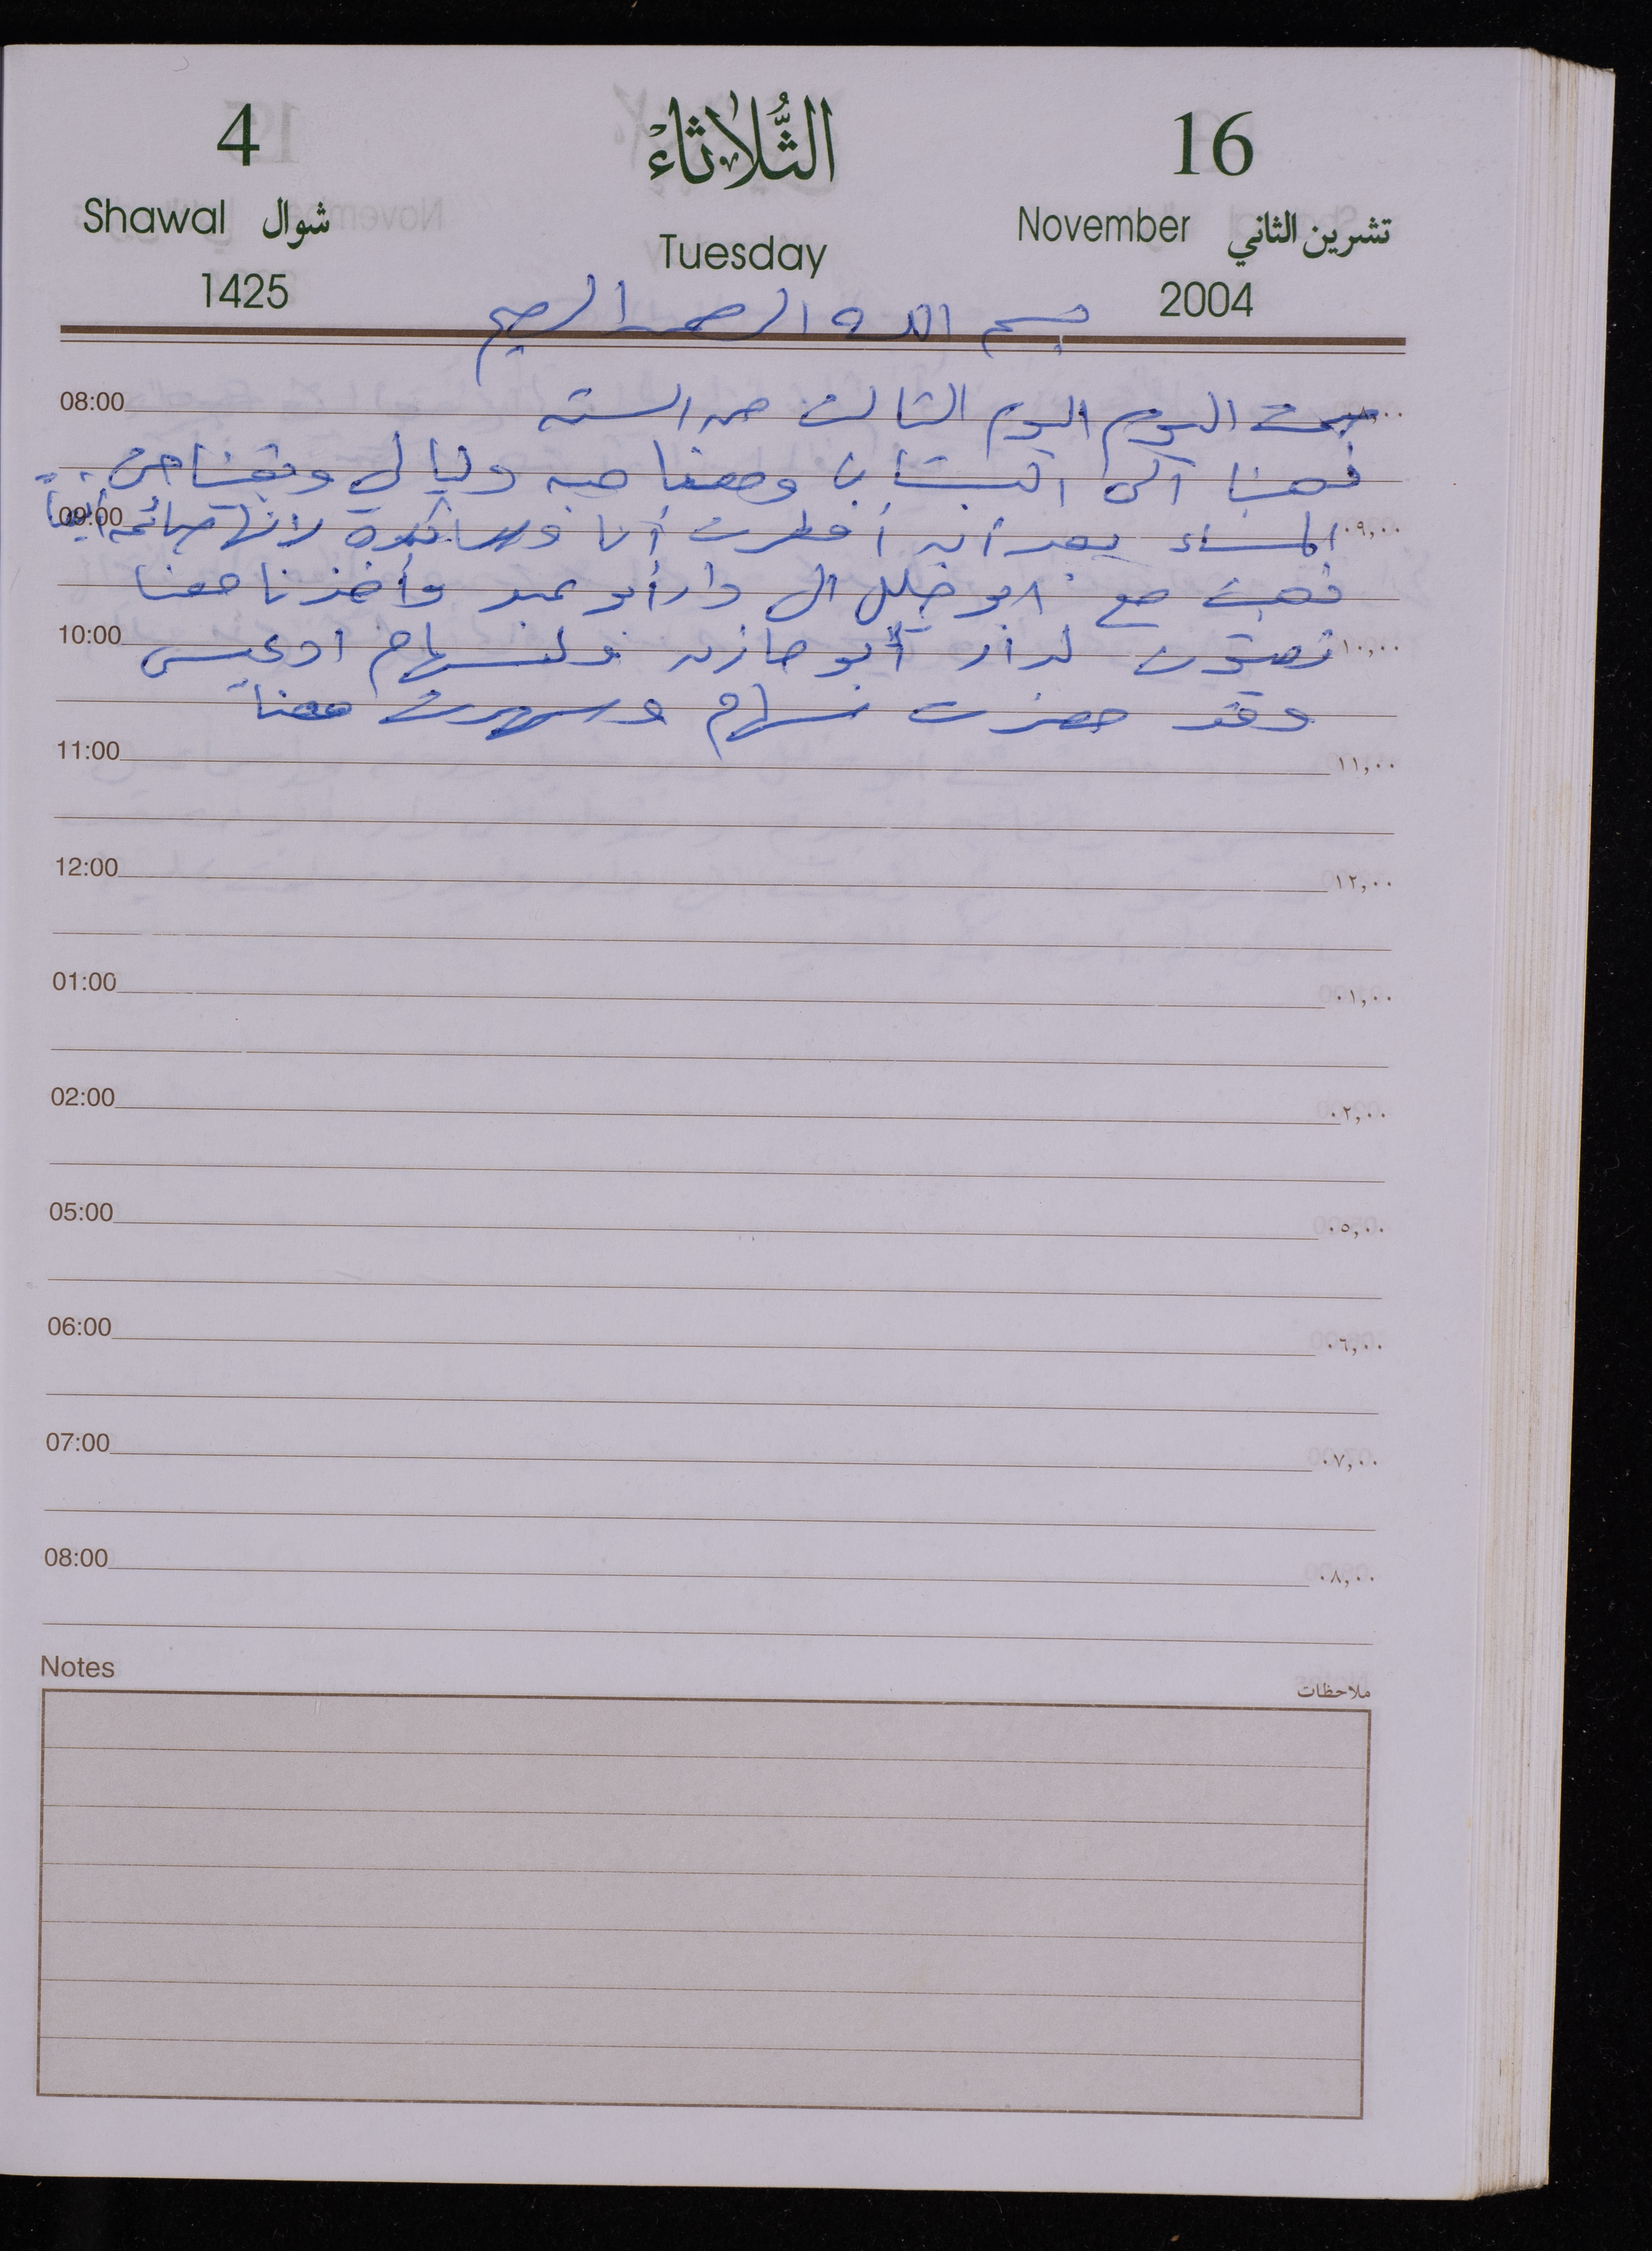 4 الثُّلاثاءُ 16
Shawal شوال Tuesday November تشرين الثاني
1425 2004
بسم الله الرحمن الرحيم
08:00 صمت اليوم اليوم الثالث من الستة ٠٨,٠٠
ذهبنا الى البستان ومعنا منه وليالي وبقينا حتى
09:00 المساء بعد أن أفطرت أنا لانها صائمة أيضاً ٠٩,٠٠
ذهبت مع ابو خليل الى دار أبو عبد وأخذنا معنا
10:00 لدار أبو مازن ولسهام ادعيس ١٠,٠٠
وقد حضرت سهام وسهرت معنا
11:00 ١١,٠٠
12:00 ١٢,٠٠
01:00 ٠١,٠٠
02:00 ٠٢,٠٠
05:00 ٠٥,٠٠
06:00 ٠٦,٠٠
07:00 ٠٧,٠٠
08:00 ٠٨,٠٠
Notes ملاحظات